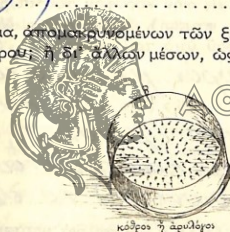 μα, ἀπομακρυνομένων τῶν ξ
ρου; ἢ δι' ἄλλων μέσων, ὡς
κόθρος ἢ ἀρυλόγος